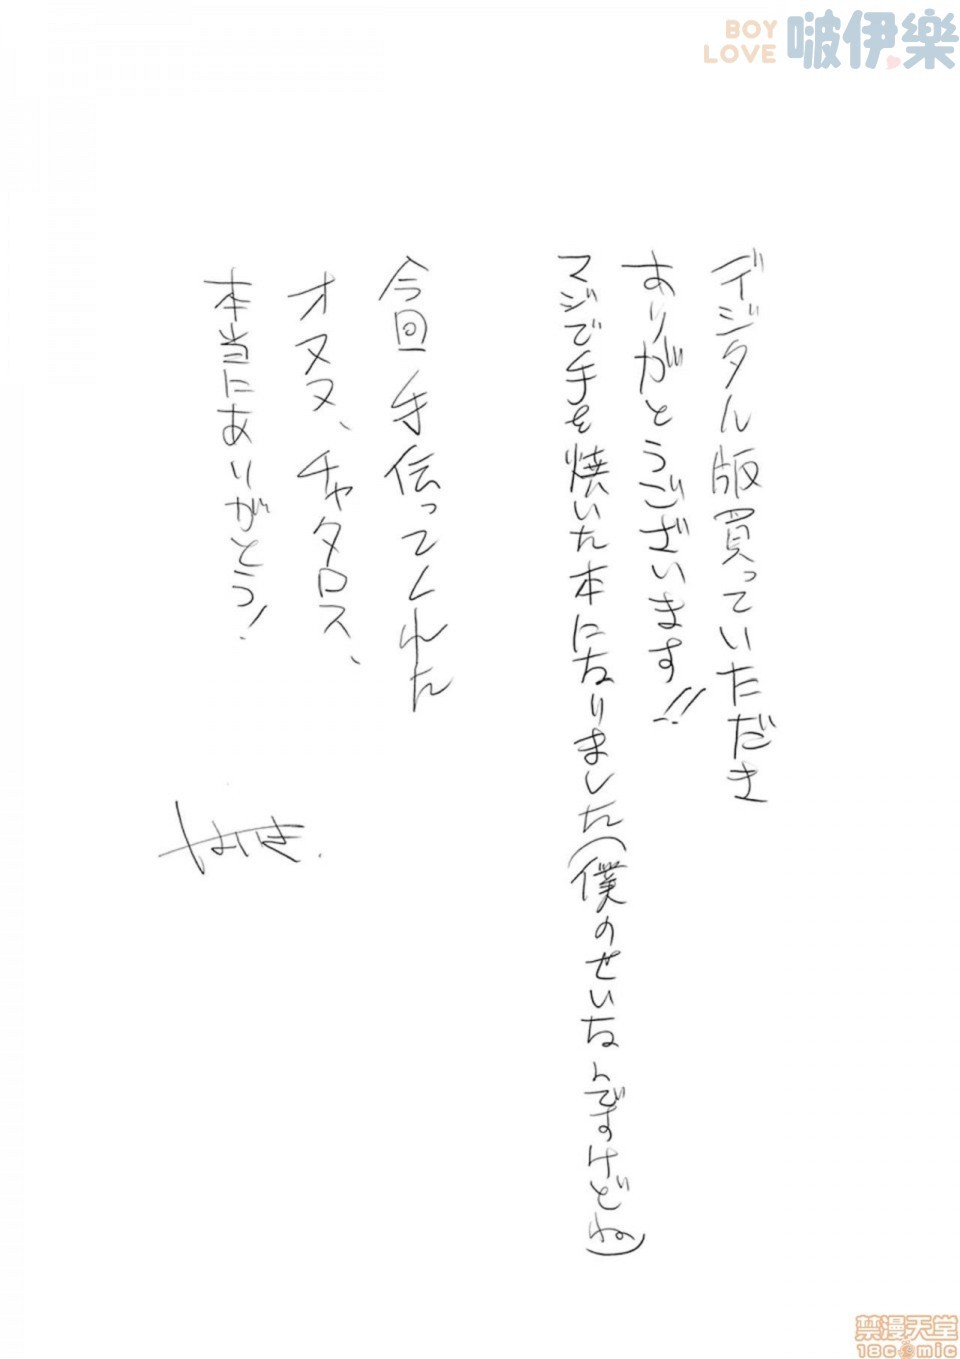 BOY
LOVE
啵伊樂
デイジタル版買っていただき
ありがとうございます!!
マジで手を焼いた本になりました(僕のせいなんですけどね)
今回手伝ってくれた
オヌヌ、チャタロス、
本当にありがとう!
禁漫天堂
18comic